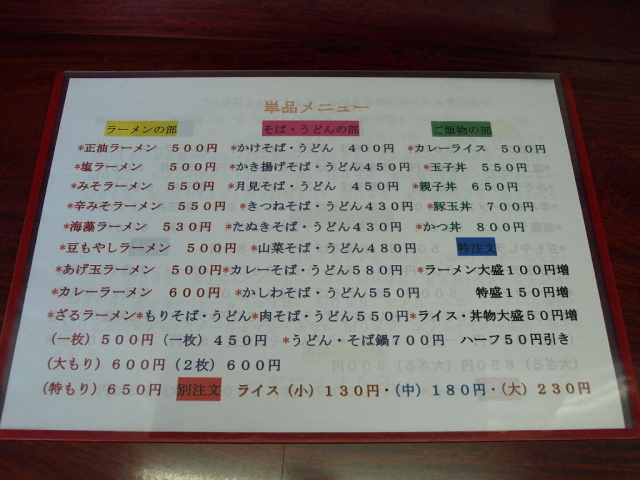 単品メニュー
ラーメンの部 そば・うどんの部 ご飯物の部
*正油ラーメン 500円 *かけそば・うどん 400円 *カレーライス 500円
*塩ラーメン 500円 *かき揚げそば・うどん450円 *玉子丼 550円
*みそラーメン 550円 *月見そば・うどん 450円 *親子丼 650円
*辛みそラーメン 550円 *きつねそば・うどん430円 *豚玉丼 700円
*海藻ラーメン 530円 *たぬきそば・うどん430円 *かつ丼 800円
*豆もやしラーメン 500円 *山菜そば・うどん480円 特注文
*あげ玉ラーメン 500円 *カレーそば・うどん580円 *ラーメン大盛100円増
*カレーラーメン 600円 *かしわそば・うどん550円 特盛150円増
*ざるラーメン *もりそば・うどん *肉そば・うどん550円 *ライス・丼物大盛50円増
(一枚) 500円 (一枚) 450円 *うどん・そば鍋700円 ハーフ50円引き
(大もり) 600円 (2枚) 600円
(特もり) 650円 別注文 ライス (小) 130円・(中) 180円・(大) 230円